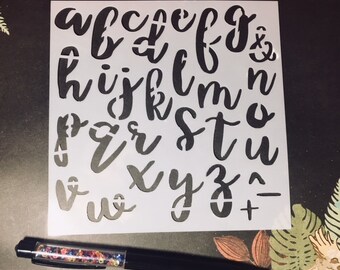 a b c d e f g &
h i j k l m n
p q r s t u o
v w x y z ^ _
+